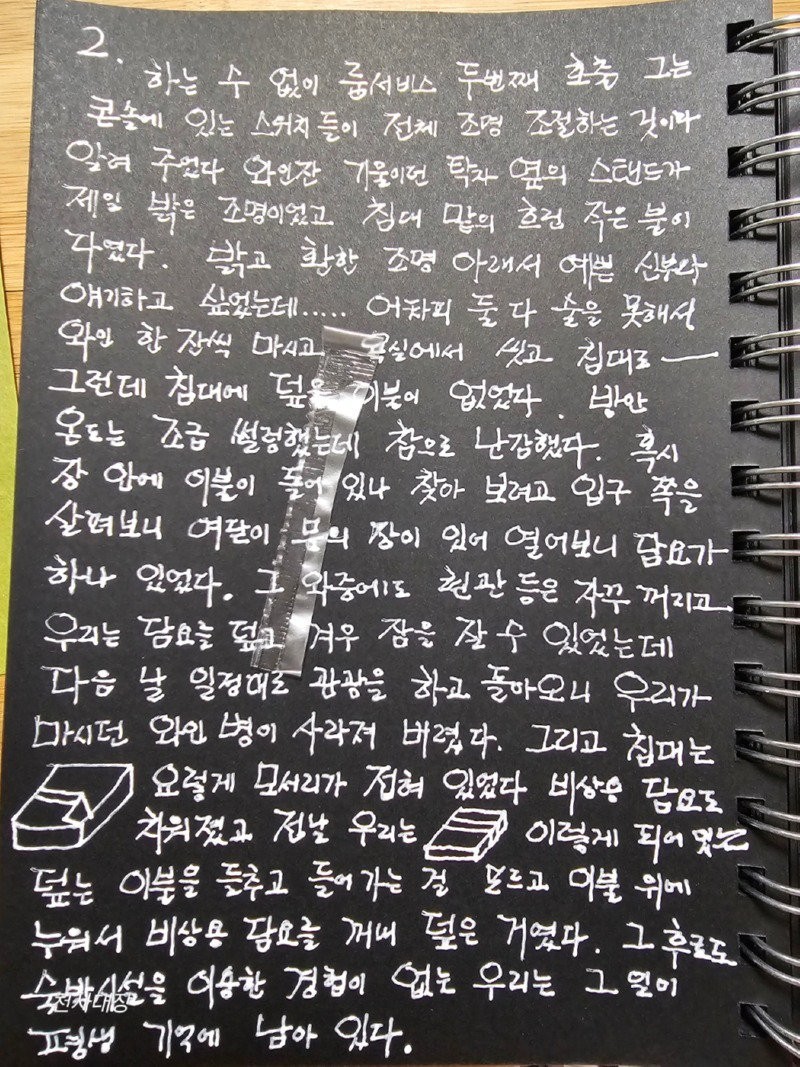 2.
하는 수 없이 룸서비스 두번째 호출 그는
콘솔에 있는 스위치들이 전체 조명 조절하는 것이다
알려 주었다 와인잔 기울이던 탁자 옆의 스탠드가
제일 밝은 조명이었고 침대 맡의 흐런 작은 불이
다였다. 밝고 환한 조명 아래서 예쁜 신부와
얘기하고 싶었는데..... 어차피 둘 다 술을 못해서
와인 한 잔씩 마시고 욕실에서 씻고 침대로 —
그런데 침대에 덮을 이불이 없었다. 방안
온도는 조금 썰렁했는데 참으로 난감했다. 혹시
장 안에 이불이 들어 있나 찾아 보려고 입구 쪽을
살펴보니 여닫이 문의 장이 있어 열어보니 담요가
하나 있었다. 그 와중에도 현관 등은 자꾸 꺼리고
우리는 담요를 덮고 겨우 잠을 잘 수 있었는데
다음 날 일정대로 관광을 하고 돌아오니 우리가
마시던 와인 병이 사라져 버렸다. 그리고 침대는
요렇게 모서리가 접혀 있었다 비상용 담요도
치워졌고 전날 우리는 이렇게 되어 있는
덮는 이불을 들추고 들어가는 걸 모르고 이불 위에
누워서 비상용 담요를 꺼내 덮은 거였다. 그 후로도
숙박시설을 이용한 경험이 없는 우리는 그 일이
전차대장
평생 기억에 남아 있다.